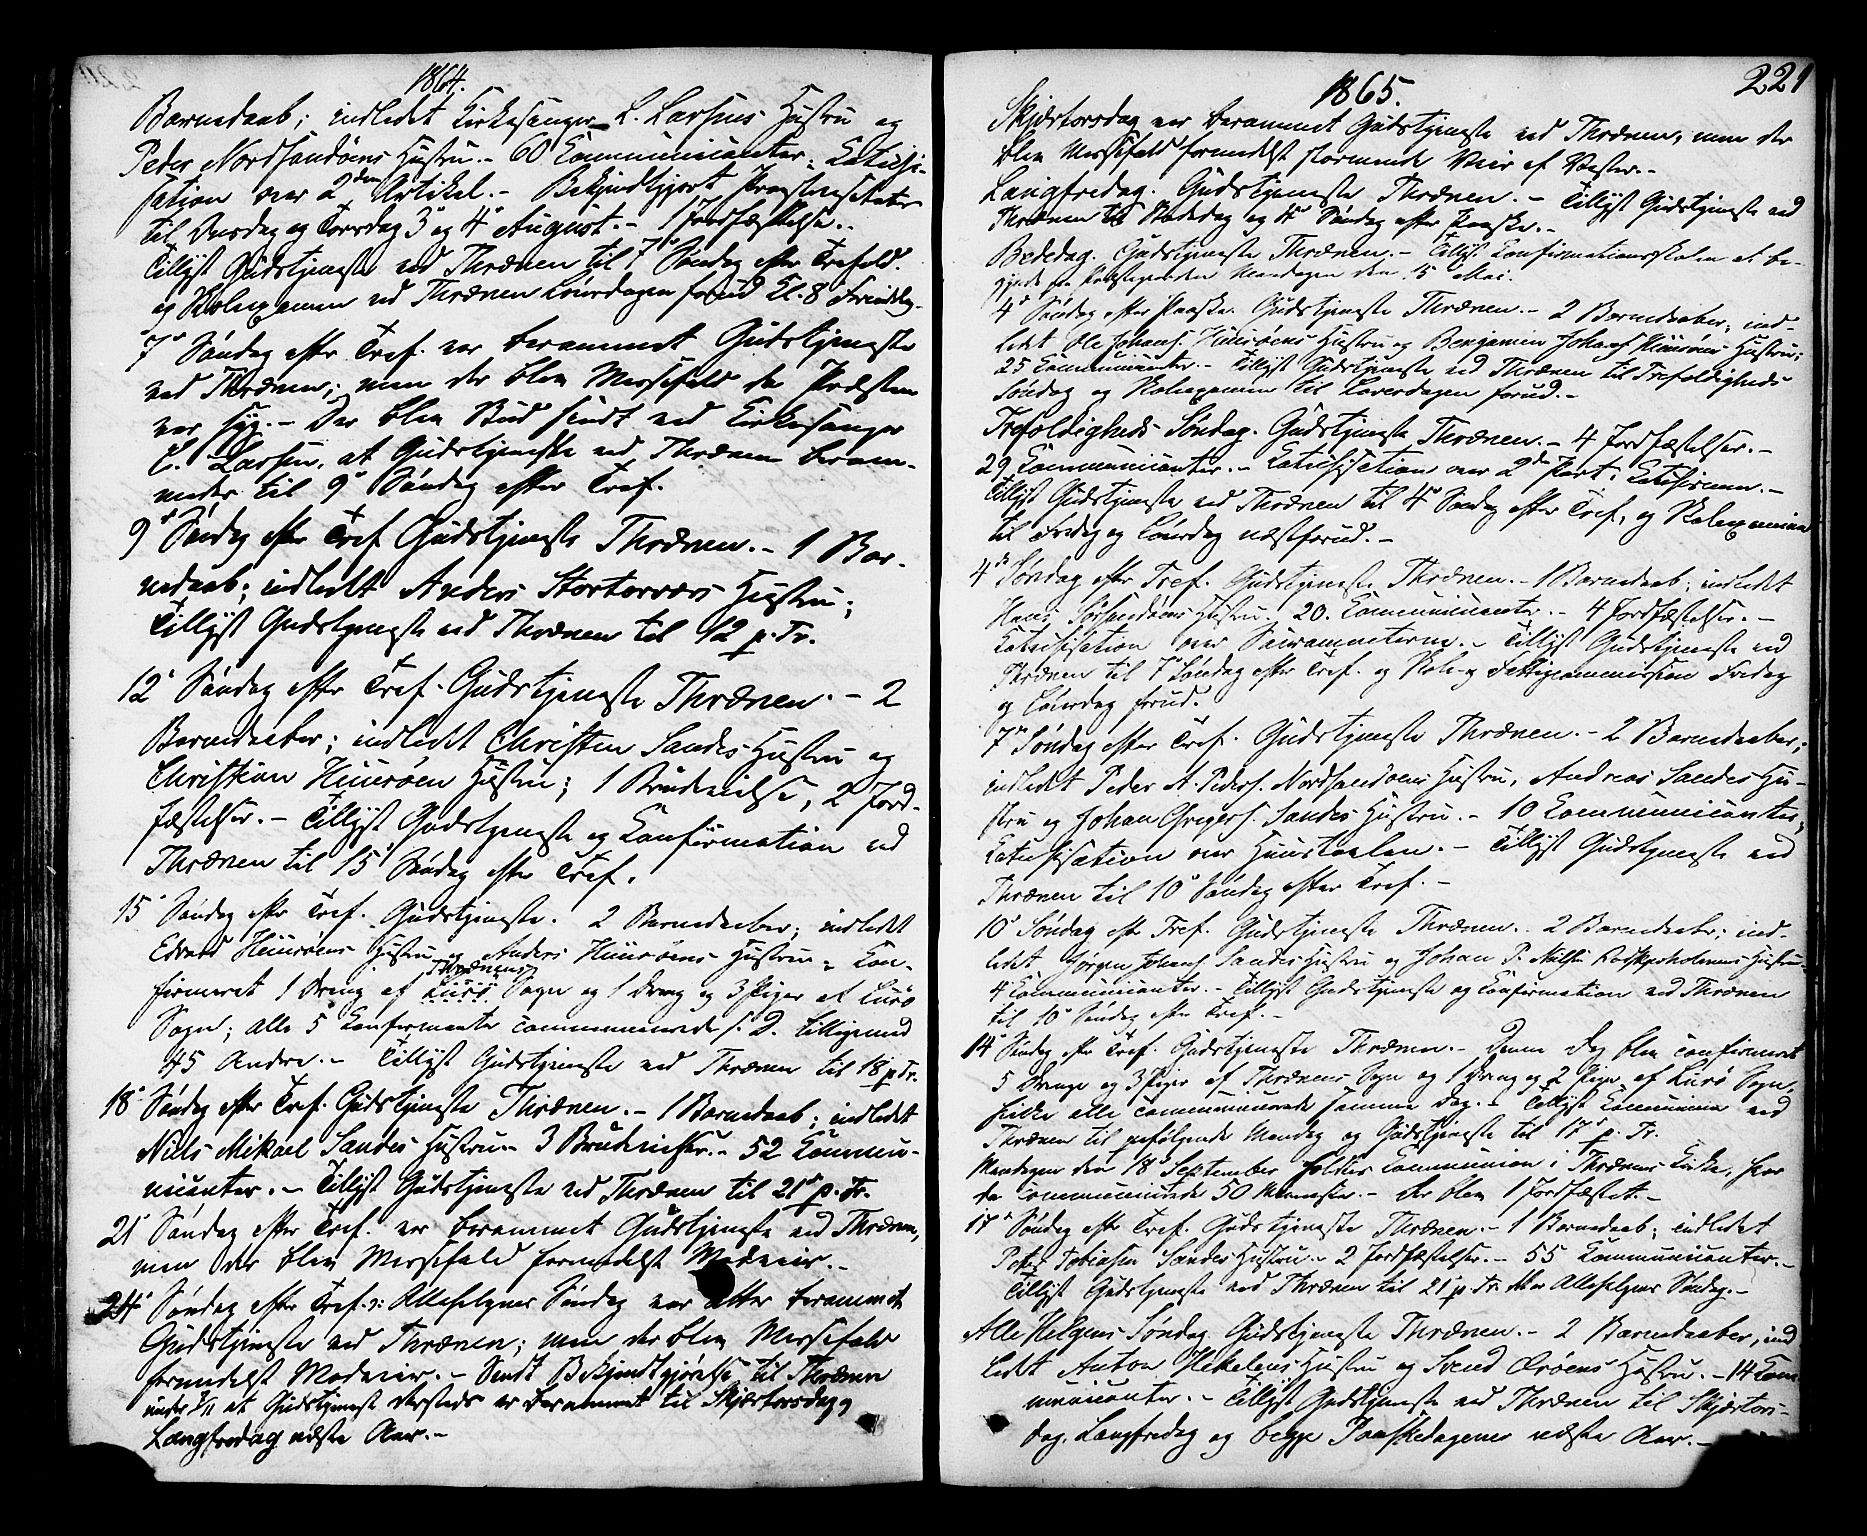 1864.
Barnedaab; indledet Kirkesanger L. Larsens Hustru og
Peder Nordsandøens Hustru. - 60 Communicanter. Katechi-
sation over 2den Artikel. - Bekjendtgjort Præstens
til Onsdag og Torsdag 3' og 4' August. - 1 Jordfæstelse. -
Tillyst Gudstjeneste ved Thrænen til 7' Søndag efter Trefold.
og Skolexamen ved Thrænen Løverdagen forud Kl. 8 Formiddag.
7' Søndag efter Tref. var berammet Gudstjeneste
ved Thrænen; men der blev Messefald da Præsten
var syg. - Der blev Bud sendt ved Kirkesanger
L. Larsen, at Gudstjeneste ved Thrænen beram-
medes til 9' Søndag efter Tref.
9' Søndag efter Tref Gudstjeneste Thrænen. - 1 Bar-
nedaab; indledt Anders Stortorværs Hustru;
Tillyst Gudstjeneste ved Thrænen til 12 p. Tr.
12' Søndag efter Tref. Gudstjeneste Thrænen. - 2
Barnedaaber; indledet Christen Sandes Hustru og
Christian Huusøen Hustru; 1 Brudevielse, 2 Jord-
fæstelser. - Tillyst Gudstjeneste og Confirmation ved
Thrænen til 15' Søndag efter Tref.
15' Søndag efter Tref. Gudstjeneste. 2 Barnedaaber; indledet
Edvard Huusøens Hustru og Anders Huusøens Hustru. Con-
Thrænens
firmeret 1 Dreng af Lurø Sogn og 1 Dreng og 3 Piger af Lurø
Sogn; alle 5 Konfirmanter communicerede s. D. tilligemed
45 Andre. - Tillyst Gudstjeneste ved Thrænen til 18 p Tr.
18' Søndag efter Tref. Gudstjeneste Thrænen. - 1 Barnedaab; indledet
Niels Mikael Sandes Hustru. 3 Brudevielser. - 52 Commu-
nicanter. - Tillyst Gudstjeneste ved Thrænen til 21' p. Tr.
21' Søndag efter Tref. var berammet Gudstjeneste ved Thrænen,
men der blev Messefald formedelst Modveir. -
24' Søndag efter Tref. ɔ: Allehelgens Søndag var atter berammet
Gudstjeneste ved Thrænen; men der blev Messefald
formedelst Modveir. - Sendt Bekjendtgjørelse til Thrænen
under 7/11 at Gudstjeneste dersteds er berammet til Skjærtorsdag,
Langfredag næste Aar. -
1865.
221
Skjærtorsdag var berammet Gudstjeneste ved Thrænen, men der
blev Messefald formedelst stormende Veir af Vester. -
Langfredag. Gudstjeneste Thrænen. - Tillyst Gudstjeneste ved
Thrænen til Bededag og 4' Søndag efter Paaske. -
Bededag. Gudstjeneste Thrænen. - Tillyst Confirmationsskolen at be-
gynde paa Præstegaarden Mandagen den 15 Mai.
4' Søndag efter Paaske. Gudstjeneste Thrænen. - 2 Barnedaaber; ind-
ledet Ole Johans. Huusøens Hustru og Benjamin Johans Huusøens Hustru;
25 Communicanter. - Tillyst Gudstjeneste ved Thrænen til Trefoldigheds
Søndag og Skolexamen til Løverdagen forud. -
Trefoldigheds Søndag. Gudstjeneste Thrænen. - 4 Jordfæstelser. -
29 Communicanter. - Katechisation over 2den Part. Katechismen. -
Tillyst Gudstjeneste ved Thrænen til 4' Søndag efter Tref. og Skolexamen
til Fredag og Løverdag næstforud. -
4de Søndag efter Tref. Gudstjeneste Thrænen. - 1 Barnedaab; indledet
Hans Sørsandøens Hustru. 20. Communicanter. - 4 Jordfæstelser. -
Katechisation over Sacramenterne. - Tillyst Gudstjeneste ved
Thrænen til 7' Søndag efter Tref. og Skole- og Fattigcommission Fredag
og Løverdag forud.
7de Søndag efter Tref. Gudstjeneste Thrænen. - 2 Barnedaaber;
indledet Peder A. Peders. Nordsandøens Hustru, Andreas Sandes Hu-
stru og Johan Gregers. Sandes Hustru. - 10 Communicanter;
Katechisation over Huustavlen. - Tillyst Gudstjeneste ved
Thrænen til 10' Søndag efter Tref. -
10' Søndag efter Tref. Gudstjeneste Thrænen. - 2 Barnedaaber; ind-
ledet Jørgen Johans. Sandes Hustru og Johan P. Nilsen Hustru.
4 Communicanter. - Tillyst Gudstjeneste og Confirmation ved Thrænen
til 10' Søndag efter Tref. -
14' Søndag efter Tref. Gudstjeneste Thrænen. - Denne Dag blev confirmeret
5 Drenge og 3 Piger af Thrænens Sogn og 1 Dreng og 2 Piger af Lurø Sogn,
hvilke alle communicerede samme Dag. - Tillyst Communion ved
Thrænen til paafølgende Mandag og Gudstjeneste til 17' p. Tr.
Mandagen den 18' September holdtes Communion i Thrænens Kirke, hvor
da communicerede 50 Mennesker. - Der blev 1 Jordfæstet. -
17' Søndag efter Tref. Gudstjeneste Thrænen. - 1 Barnedaab; indledet
Peter Tobiasen Sandes Hustru. - 2 Jordfæstelser. - 55 Communicanter. -
Tillyst Gudstjeneste ved Thrænen til 21' p. Tr. eller Allehelgens Søndag. -
Alle Helgens Søndag Gudstjeneste Thrænen. - 2 Barnedaaber, ind
ledet Anton Hikelens Hustru og Svend Ørøens Hustru. - 14 Com
municanter. - Tillyst Gudstjeneste ved Thrænen til Skjærtors-
dag, Langfredag og begge Paaskedagene næste Aar. -